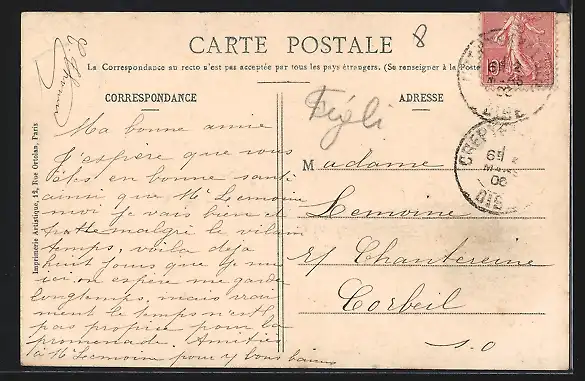 CARTE POSTALE
8
La Correspondance au recto n'est pas acceptée par tous les pays étrangers. (Se renseigner à la Poste
CORRESPONDANCE
ADRESSE
Fégli
Ma bonne amie
J'espère que vous
êtes en bonne santé
ainsi que Mr Lemoine
moi je vais bien et
malgré le vilain
temps, voila deja
huit jours que je suis
ici on espère me garder
longtemps, mais vrai
ment le temps n'est
pas propice pour la
promenade. Amitiés
à Mr Lemoine pour vous bons baisers
Madame
Lemoine
r/ Chantereine
Corbeil
S. O
CREPY
MARS
06
OISE
Imprimerie Artistique, 12, Rue Ortolan, Paris